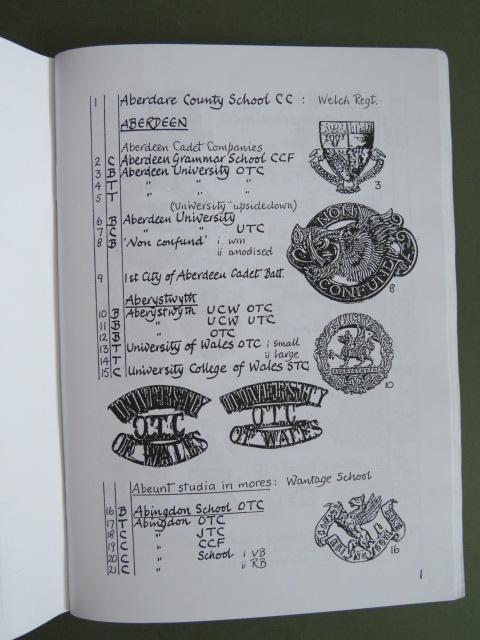 1 Aberdare County School CC : Welch Regt.
ABERDEEN
Aberdeen Cadet Companies
2 C Aberdeen Grammar School CCF
3 B Aberdeen University OTC
4 T " " "
5 T " " "
(University "upsidedown)
3
6 B Aberdeen University
7 C " " UTC
8 B 'Non confund' i wm
ii anodised
NON
CONFUND
8
9 1st City of Aberdeen Cadet Batt.
Aberystwyth
10 B Aberystwyth UCW OTC
11 B " UCW UTC
12 B " OTC
13 T University of Wales OTC i small
14 T ii large
15 C University College of Wales STC
10
UNIVERSITY
OTC
OF WALES
UNIVERSITY
OTC
OF WALES
Abeunt studia in mores: Wantage School
16 B Abingdon School OTC
17 T Abingdon OTC
18 C " JTC
19 C " CCF
20 C " School i VB
21 C ii RB
16
1